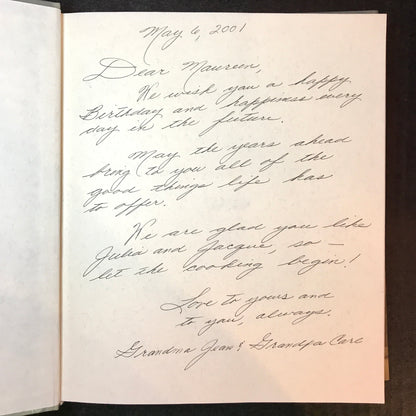 May 6, 2001
Dear Maureen,
We wish you a happy
Birthday and happiness every
day in the future.
May the years ahead
bring to you all of the
good things life has
to offer.
We are glad you like
Julia and Jacque, so —
let the cooking begin!
Love to yours and
to you, always.
Grandma Jean & Grandpa Carl